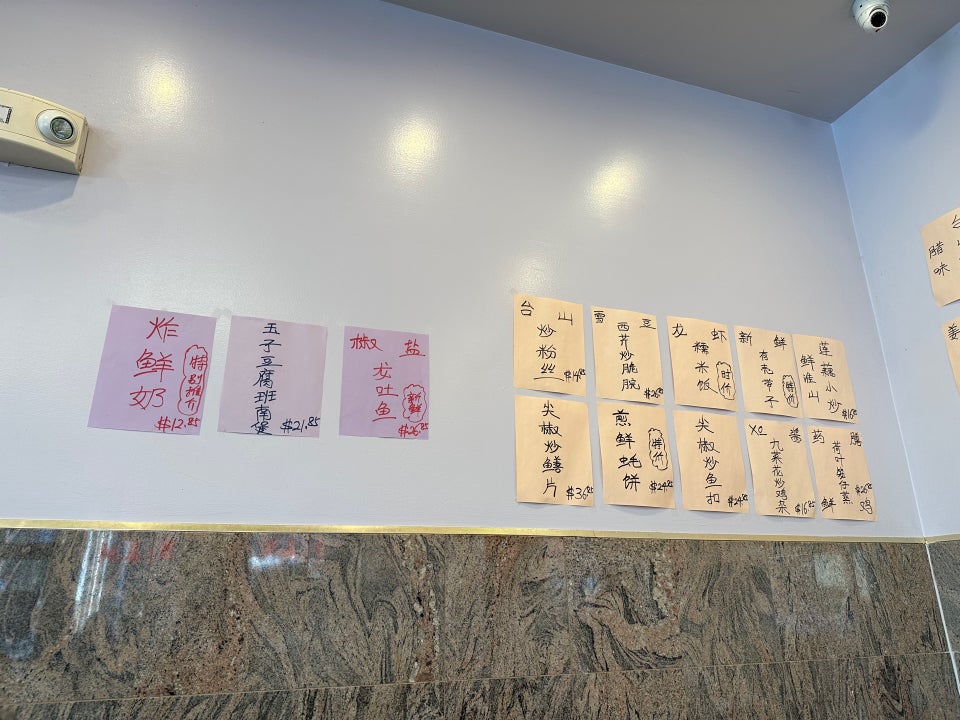 炸鲜奶
特别推介
$12.85
五子豆腐班南煲
$21.85
椒盐
龙吐鱼
新鲜
$26.85
台山
炒粉丝
$14.85
雪豆
西芹炒脆脘
$26.85
龙虾
糯米饭
时价
新鲜
有壳带子
特价
莲藕小炒
鲜淮山
$16.85
尖椒炒鳝片
$36.85
煎鲜蚝饼
特价
$24.85
尖椒炒鱼扣
$24.85
XO酱
九菜花炒鸡杂
$16.85
药膳
荷叶笼仔蒸
鲜鸡
$26.85
台
腊味
姜